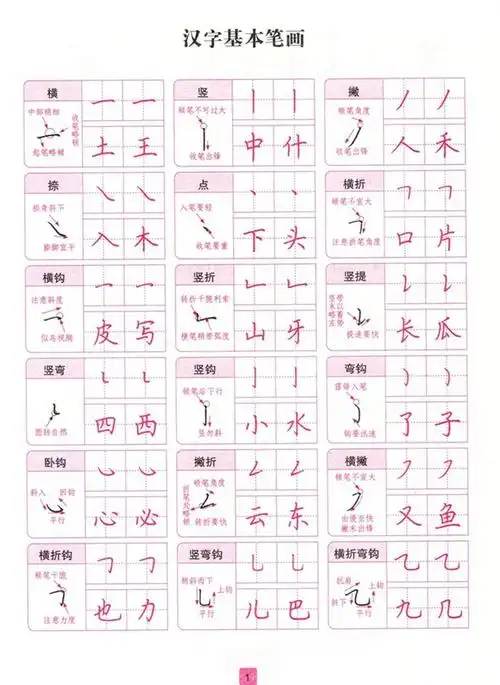 汉字基本笔画
横 竖 撇
中部稍细 收笔略顿 起笔略顿 一 一 土 王
顿笔不可过大 收笔出锋 丨 丨 中 什
顿笔角度 收笔出锋 丿 丿 人 禾
捺 点 横折
捺身斜下 捺脚宜平 ㇏ ㇏ 入 木
入笔要轻 收笔要重 丶 丶 下 头
顿笔不宜大 注意折笔角度 ㇕ ㇕ 口 片
横钩 竖折 竖提
注意斜度 似鸟视胸 ㇖ ㇖ 皮 写
转折干脆利索 横笔稍带弧度 ㇗ ㇗ 山 牙
提速要快 ㇙ ㇙ 长 瓜
竖弯 竖钩 弯钩
圆转自然 ㇄ ㇄ 四 西
顿笔后下行 竖勿斜 亅 亅 小 水
露锋入笔 钩要迅速 ㇁ ㇁ 了 子
卧钩 撇折 横撇
斜入 回钩 平行 ㇃ ㇃ 心 必
顿笔角度 折笔处略顿 转折要快 ㇜ ㇜ 云 东
顿笔不宜大 由慢至快 撇末出锋 ㇇ ㇇ 又 鱼
横折钩 竖弯钩 横折弯钩
顿笔干脆 注意力度 ㇆ ㇆ 也 力
稍斜向下 上钩 平行 ㇟ ㇟ 儿 巴
抗肩 上钩 斜下 平行 ㇈ ㇈ 九 几
1